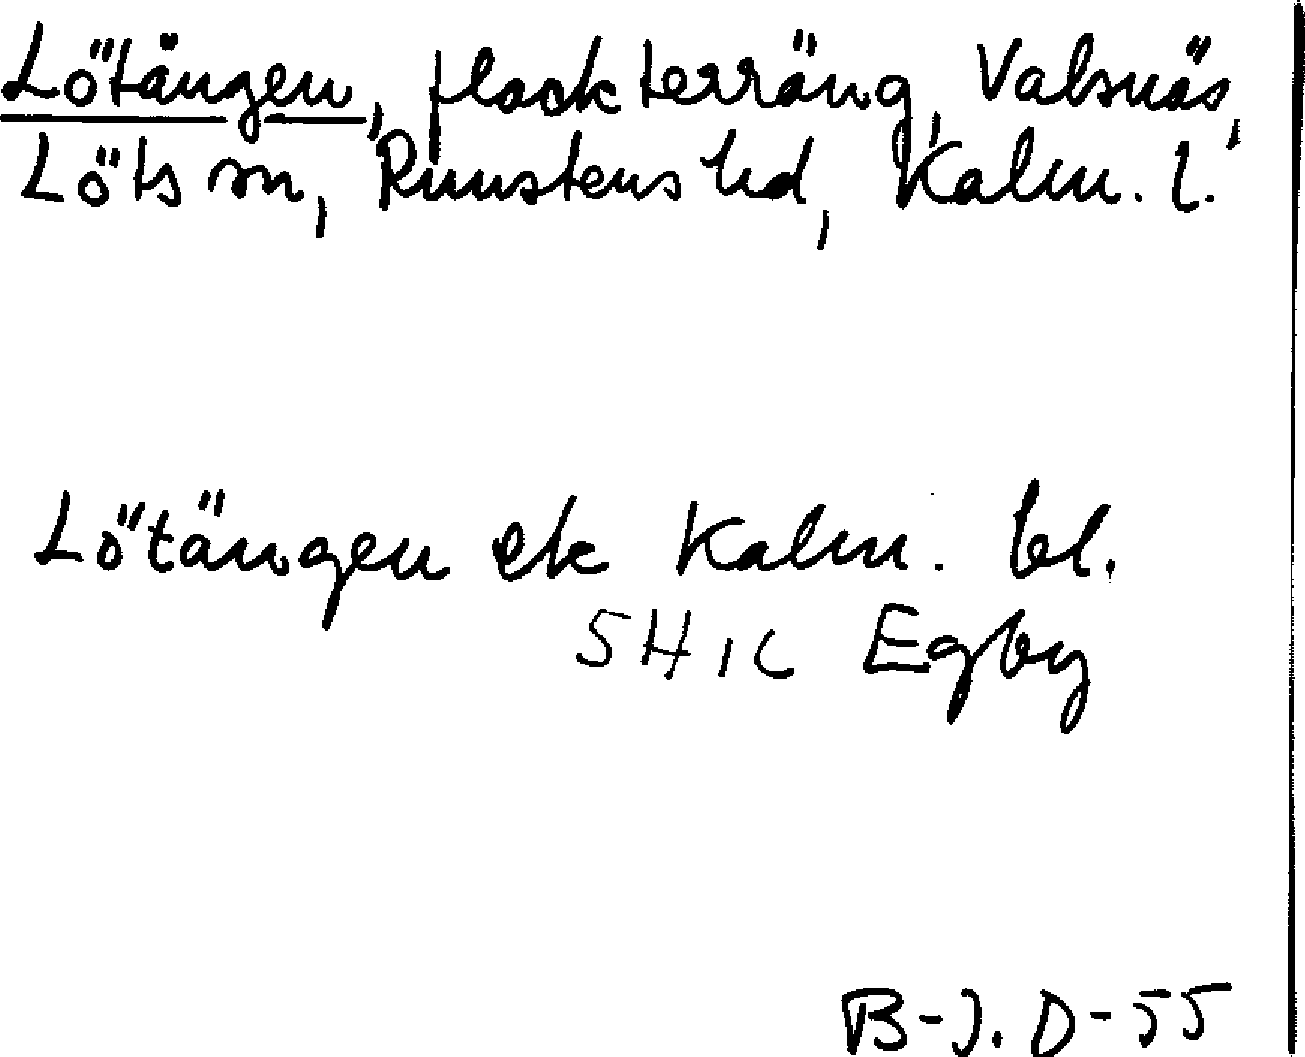 Lötängen, flack terräng, Valsnäs,
Löts sn, Runstens hd, Kalm. l.
Lötängen ek Kalm. bl.
5H 1c Egby
B-J. D-55